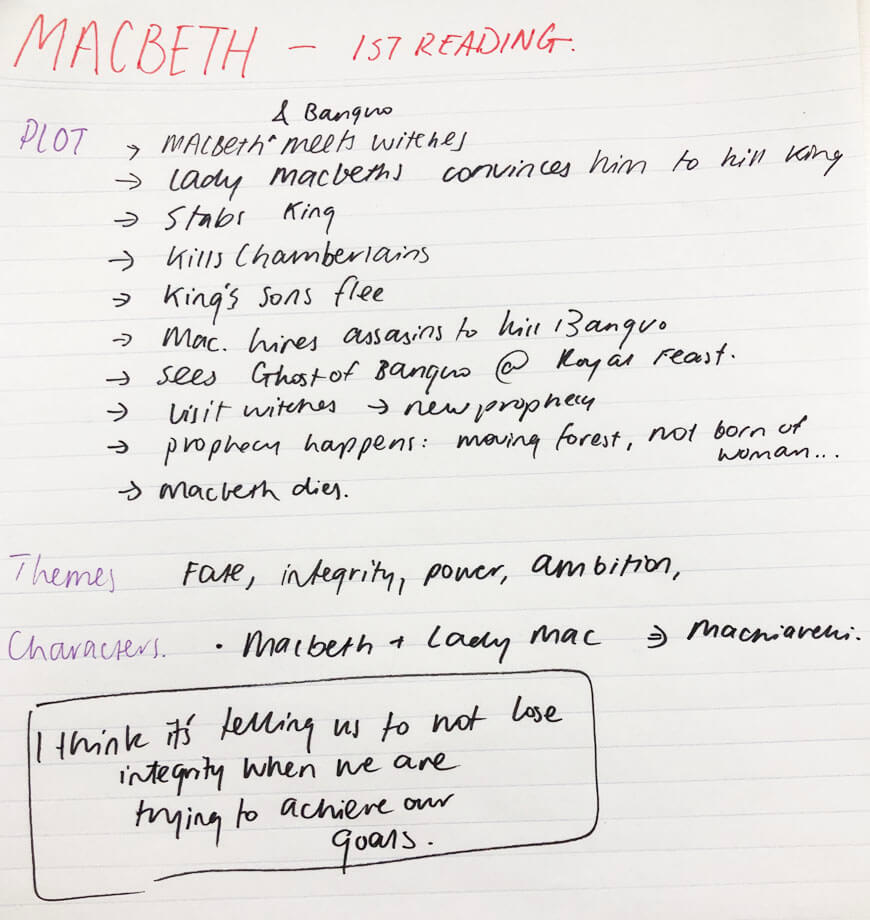 MACBETH - 1ST READING.
& Banguo
PLOT → MACBeth ^ meets witches
→ Lady Macbeths convinces him to kill King
→ Stabs King
→ Kills Chamberlains
→ King's sons flee
→ Mac. hires assasins to kill Banquo
→ sees Ghost of Banquo @ Royal Feast.
→ visit witches → new prophecy
→ prophecy happens: moving forest, not born of
woman...
→ Macbeth dies.
Themes Fate, integrity, power, ambition,
Characters. • Macbeth + Lady Mac ⇒ Machiavelli.
I think it's telling us to not lose
integrity when we are
trying to achieve our
goals.